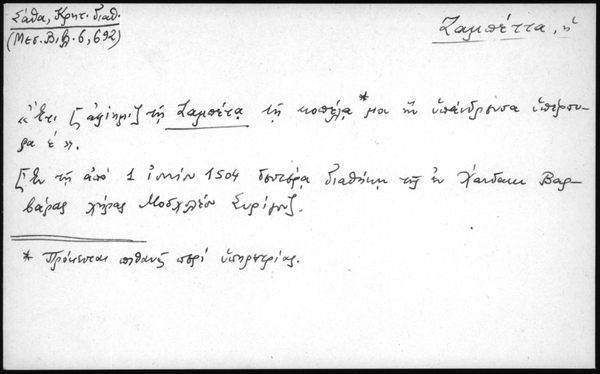 Σάθα, Κρητ. διαθ.
(Μεσ. Βιβλ. 6, 692)
Ζαμπέττα, ἡ
«Ἔτι [ἀφίημι] τῆ Ζαμπέτᾳ τῆ κοπέλᾳ* μου ἣν ὑπάνδρευσα ὑπέρπυ-
ρα ε'».
[Ἐν τῇ ἀπὸ 1 ἰουνίου 1504 δευτέρᾳ διαθήκη τῆς ἐν Χάνδακι Βαρ-
βάρας χήρας Μοσχολέο Συρίγου].
* Πρόκειται πιθανῶς περὶ ὑπηρετρίας.